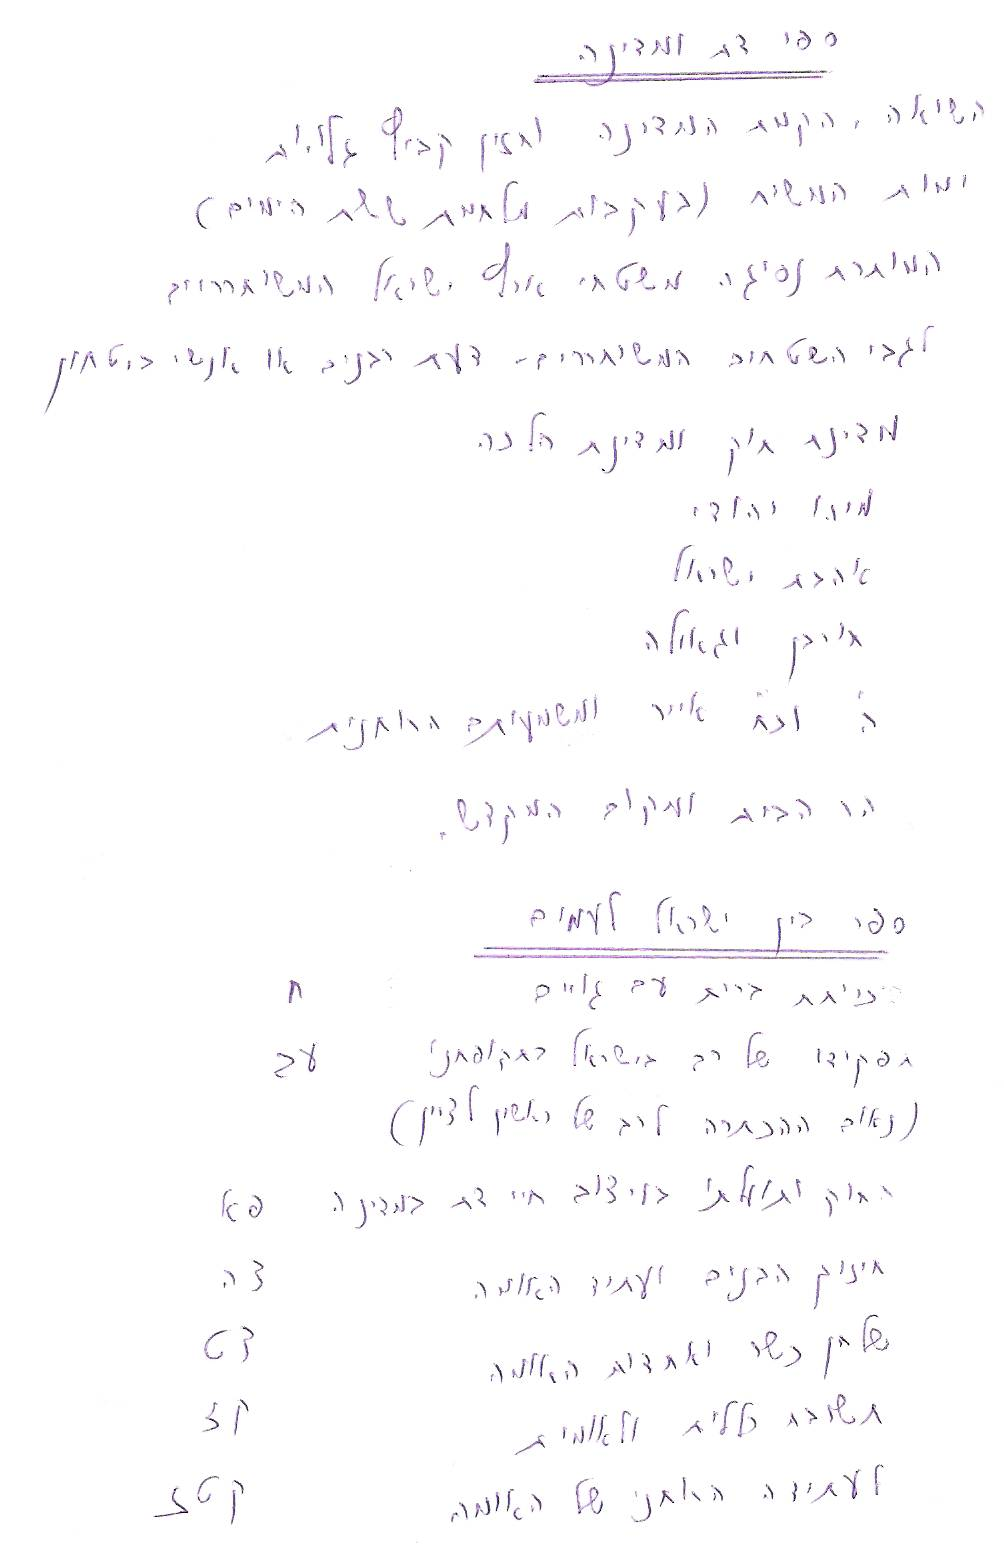 ספר דת ומדינה
השואה, הקמת המדינה וחזון קבוץ גלויות
ימות המשיח (בעקבות מלחמת ששת הימים)
המותרת נסיגה משטחי ארץ ישראל המשוחררים
לגבי השטחים המשוחררים - דעת רבנים או אנשי בטחון
מדינת חוק ומדינת הלכה
מיהו יהודי
אהבת ישראל
חורבן וגאולה
ה' וכ"ח אייר ומשמעותם הרוחנית
הר הבית ומקום המקדש.
ספר בין ישראל לעמים
כריתת ברית עם גויים ח
תפקידו של רב בישראל בתקופתנו עב
(נאום ההכתרה לרב של ראשון לציון)
החוק ותועלתו בעיצוב חיי דת במדינה פא
חינוך הבנים ועתיד האומה צה
שלחן כשר ואחדות האומה צט
תשובה כללית ולאומית קז
לעתידה הרוחני של האומה קטז